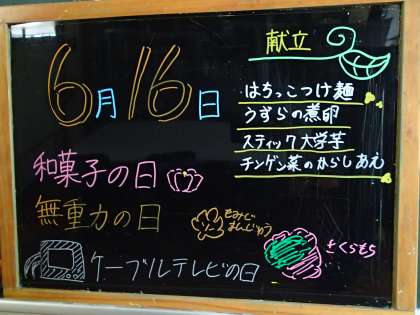 6月16日
献立
はちっこつけ麺
うずらの煮卵
スティック大学芋
チンゲン菜のからしあえ
和菓子の日
無重力の日
もみじ
まんじゅう
さくらもち
ケーブルテレビの日